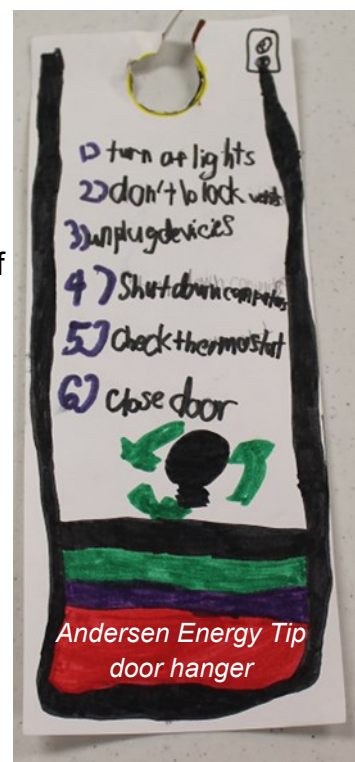 1) turn of lights
2) don't block vents
3) unplug devicies
f
4) Shut down computers
5) Check thermostat
6) close door
Andersen Energy Tip
door hanger